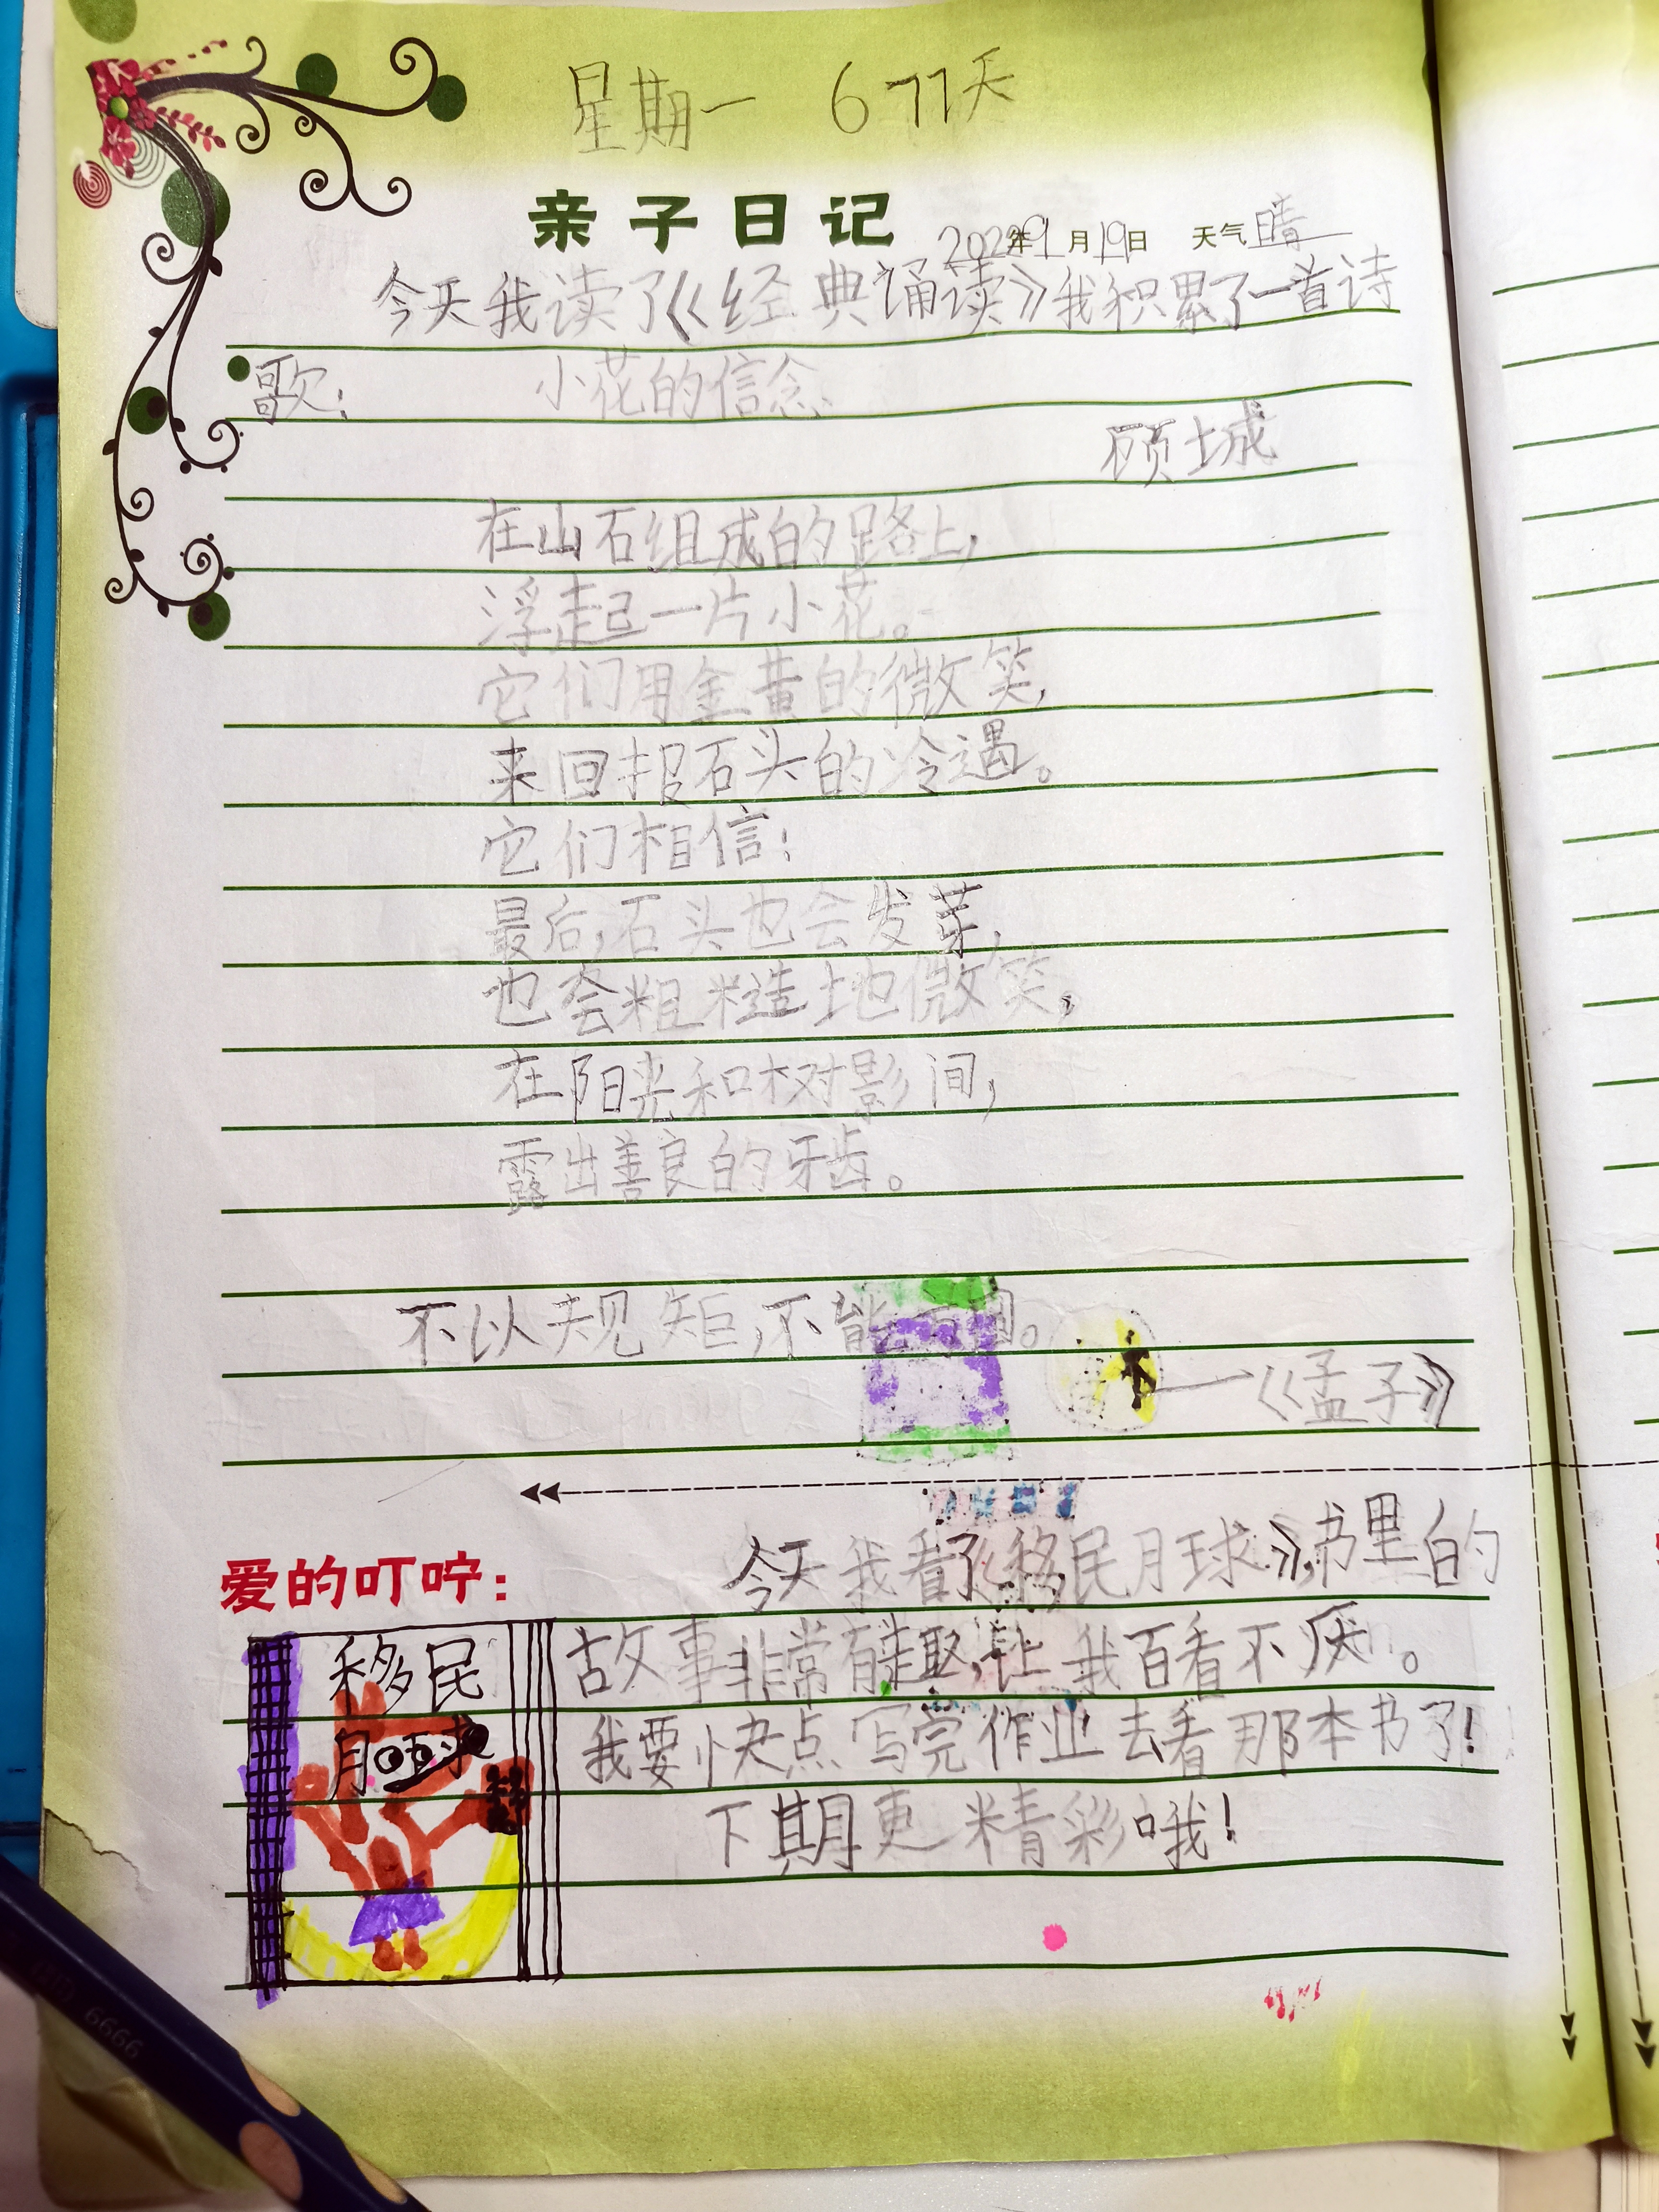 星期一 677天
亲子日记 2022年9月19日 天气晴
今天我读了《经典诵读》我积累了一首诗
歌: 小花的信念
顾城
在山石组成的路上,
浮起一片小花。
它们用金黄的微笑,
来回报石头的冷遇。
它们相信:
最后,石头也会发芽,
也会粗糙地微笑,
在阳光和树影间,
露出善良的牙齿。
不以规矩,不能方圆。
——《孟子》
爱的叮咛: 今天我看了《移民月球》,书里的
故事非常有趣,让我百看不厌。
我要快点写完作业去看那本书了!
下期更精彩哦!
移民
月球
6666